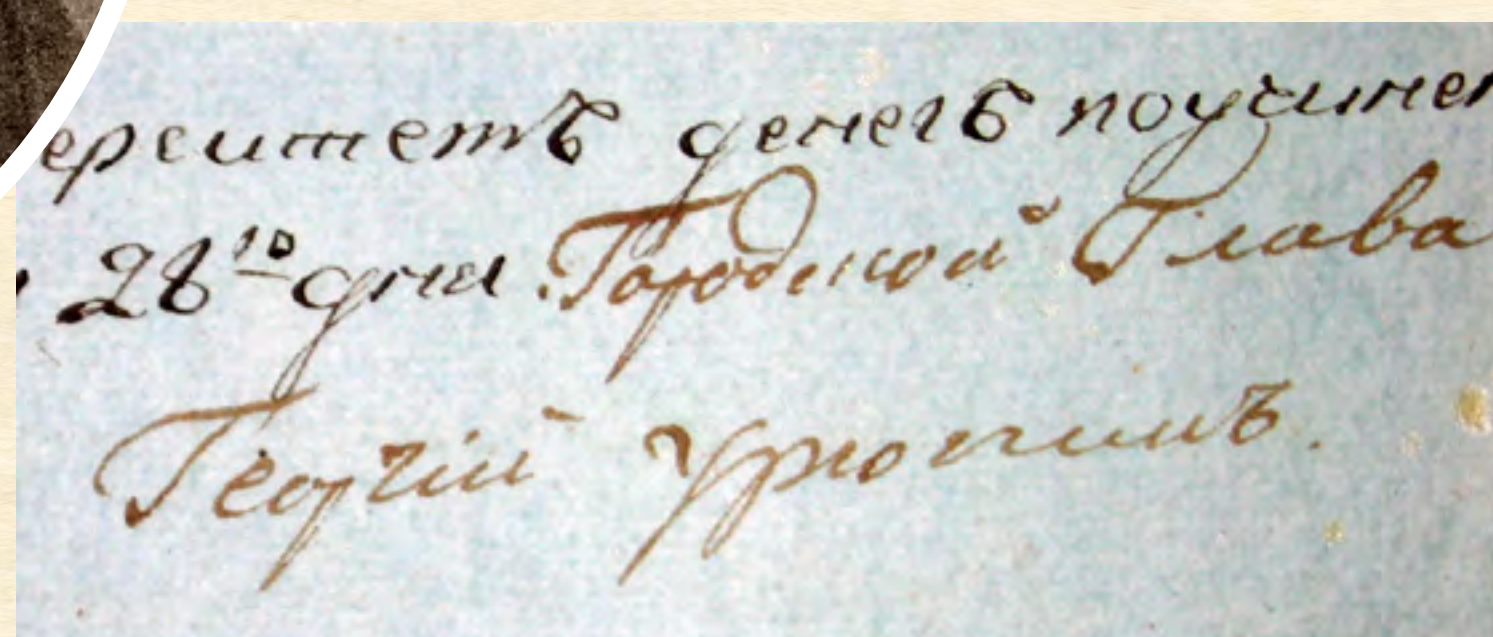 денегъ поучинен
28го дня. Городской Глава
Георгій Урюпинъ.